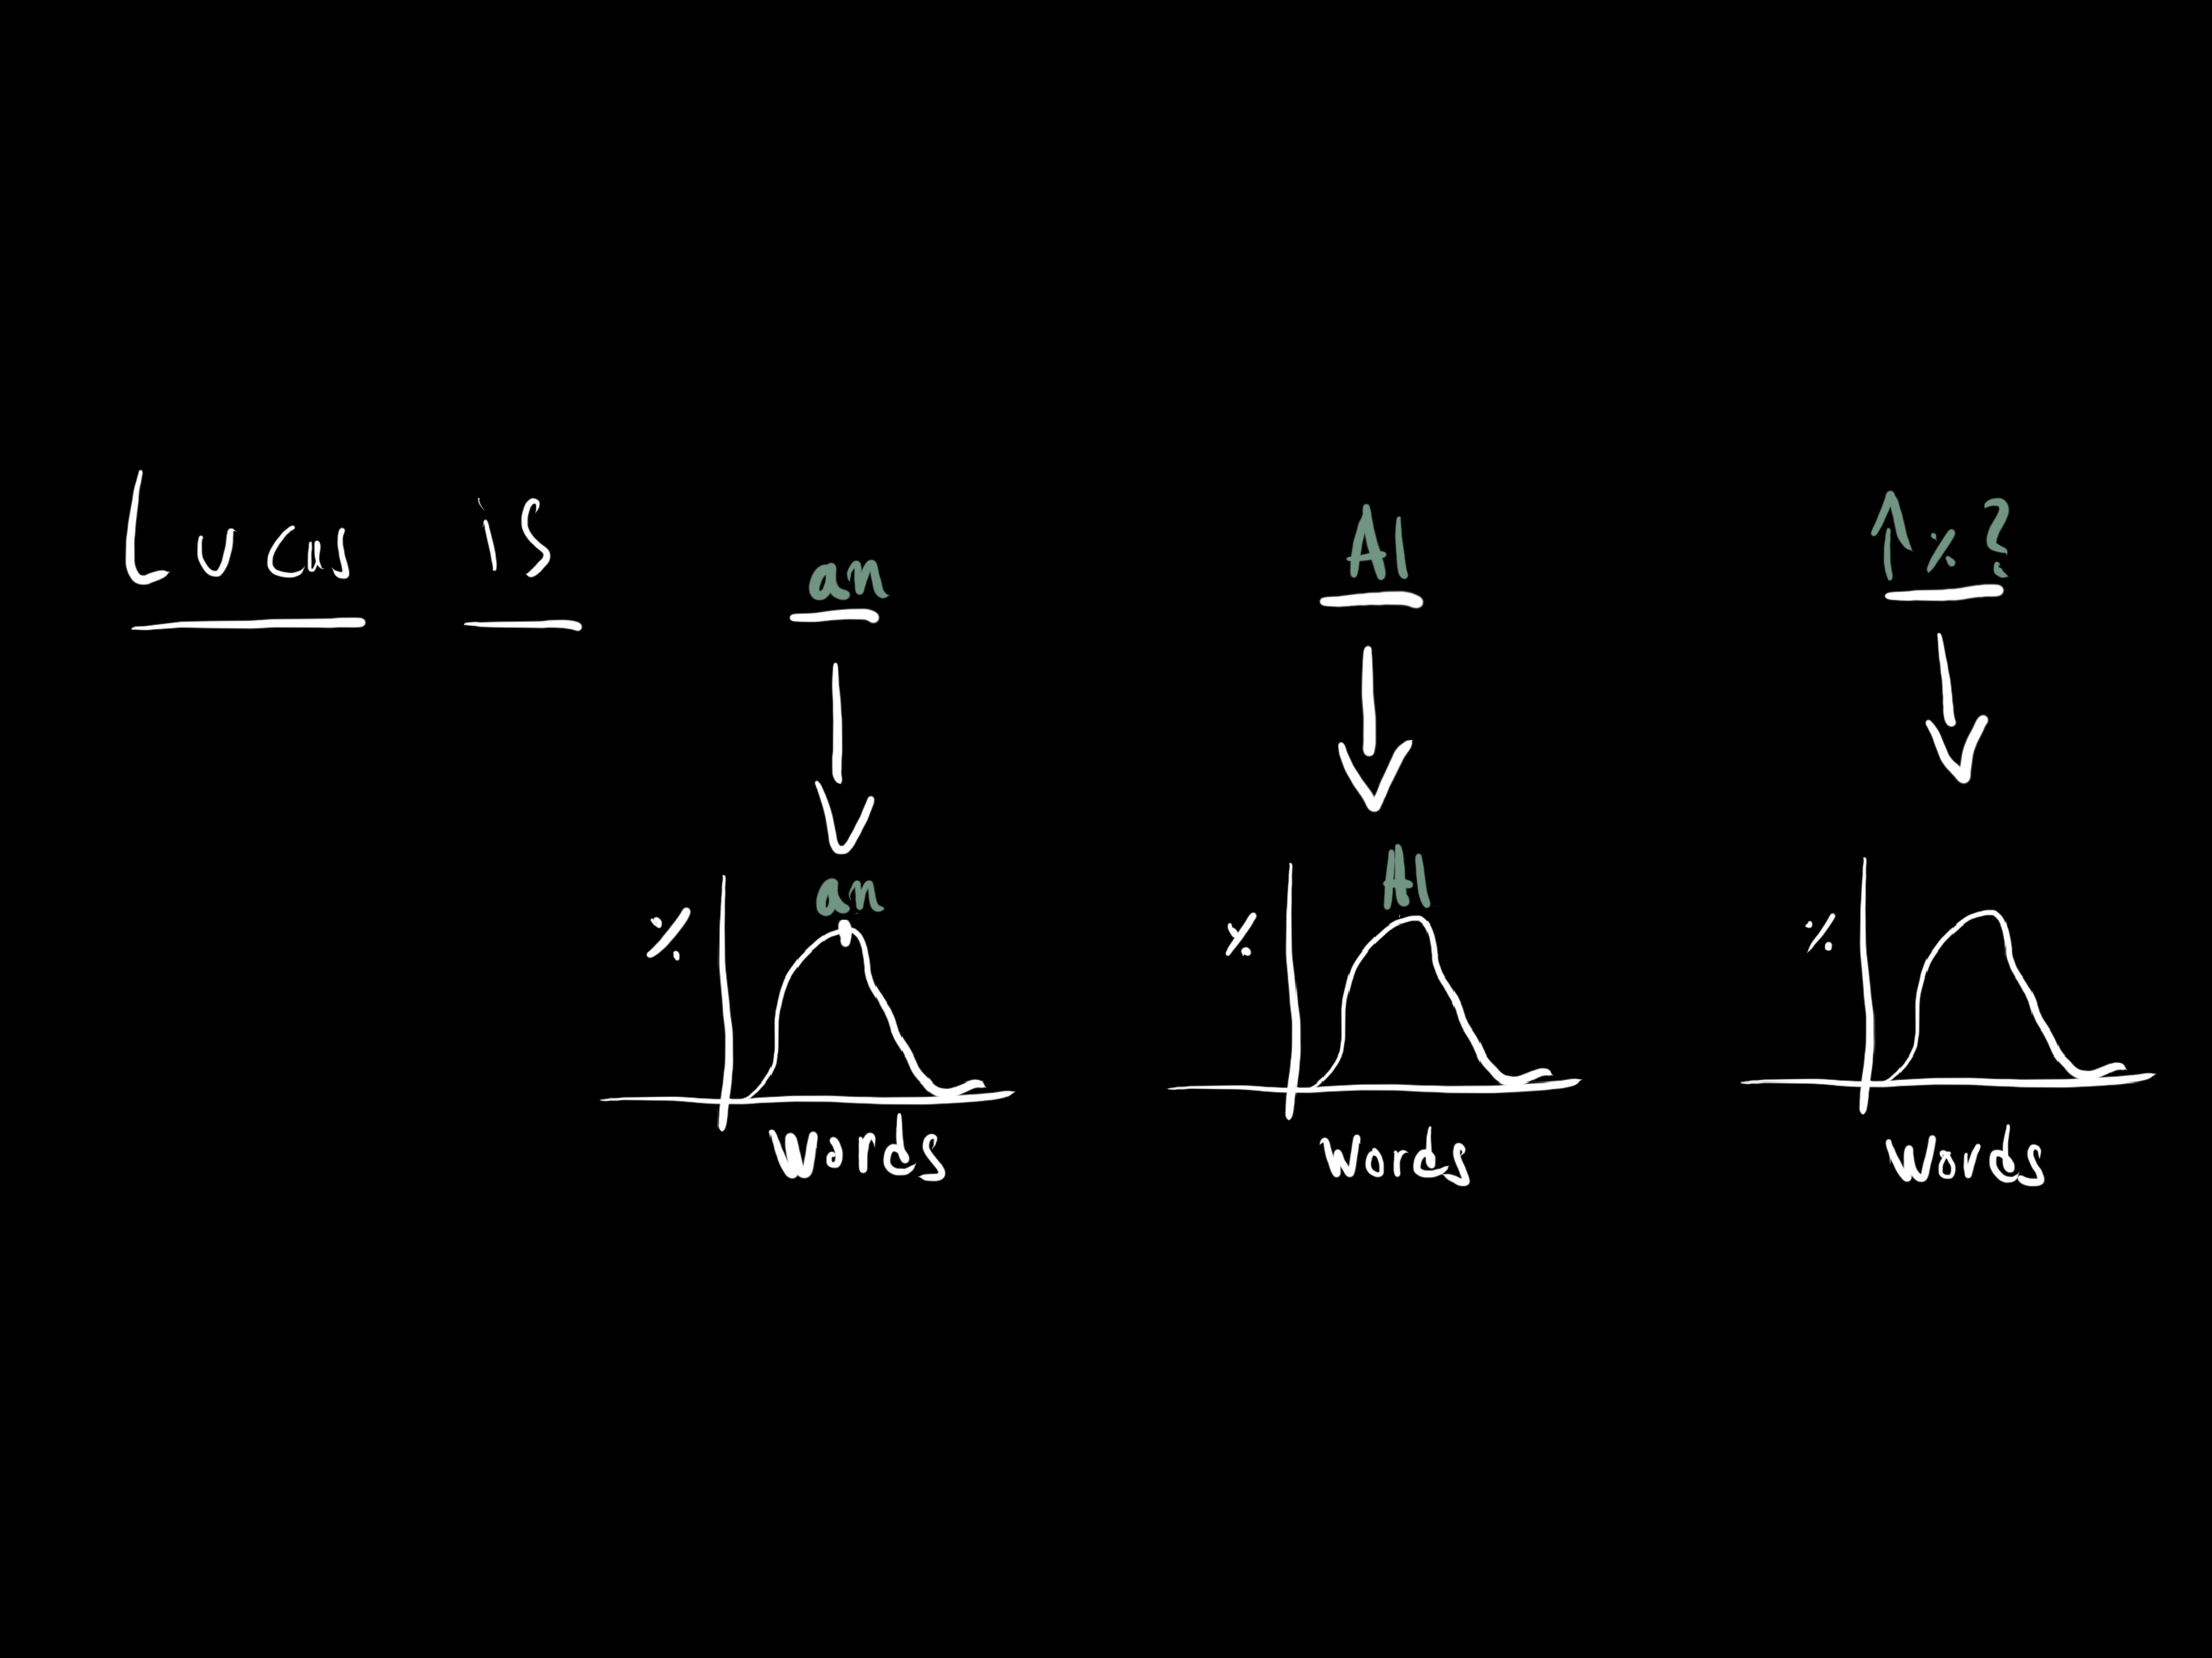 Lucas is an AI ↑%?
an AI
% % %
Words Words Words